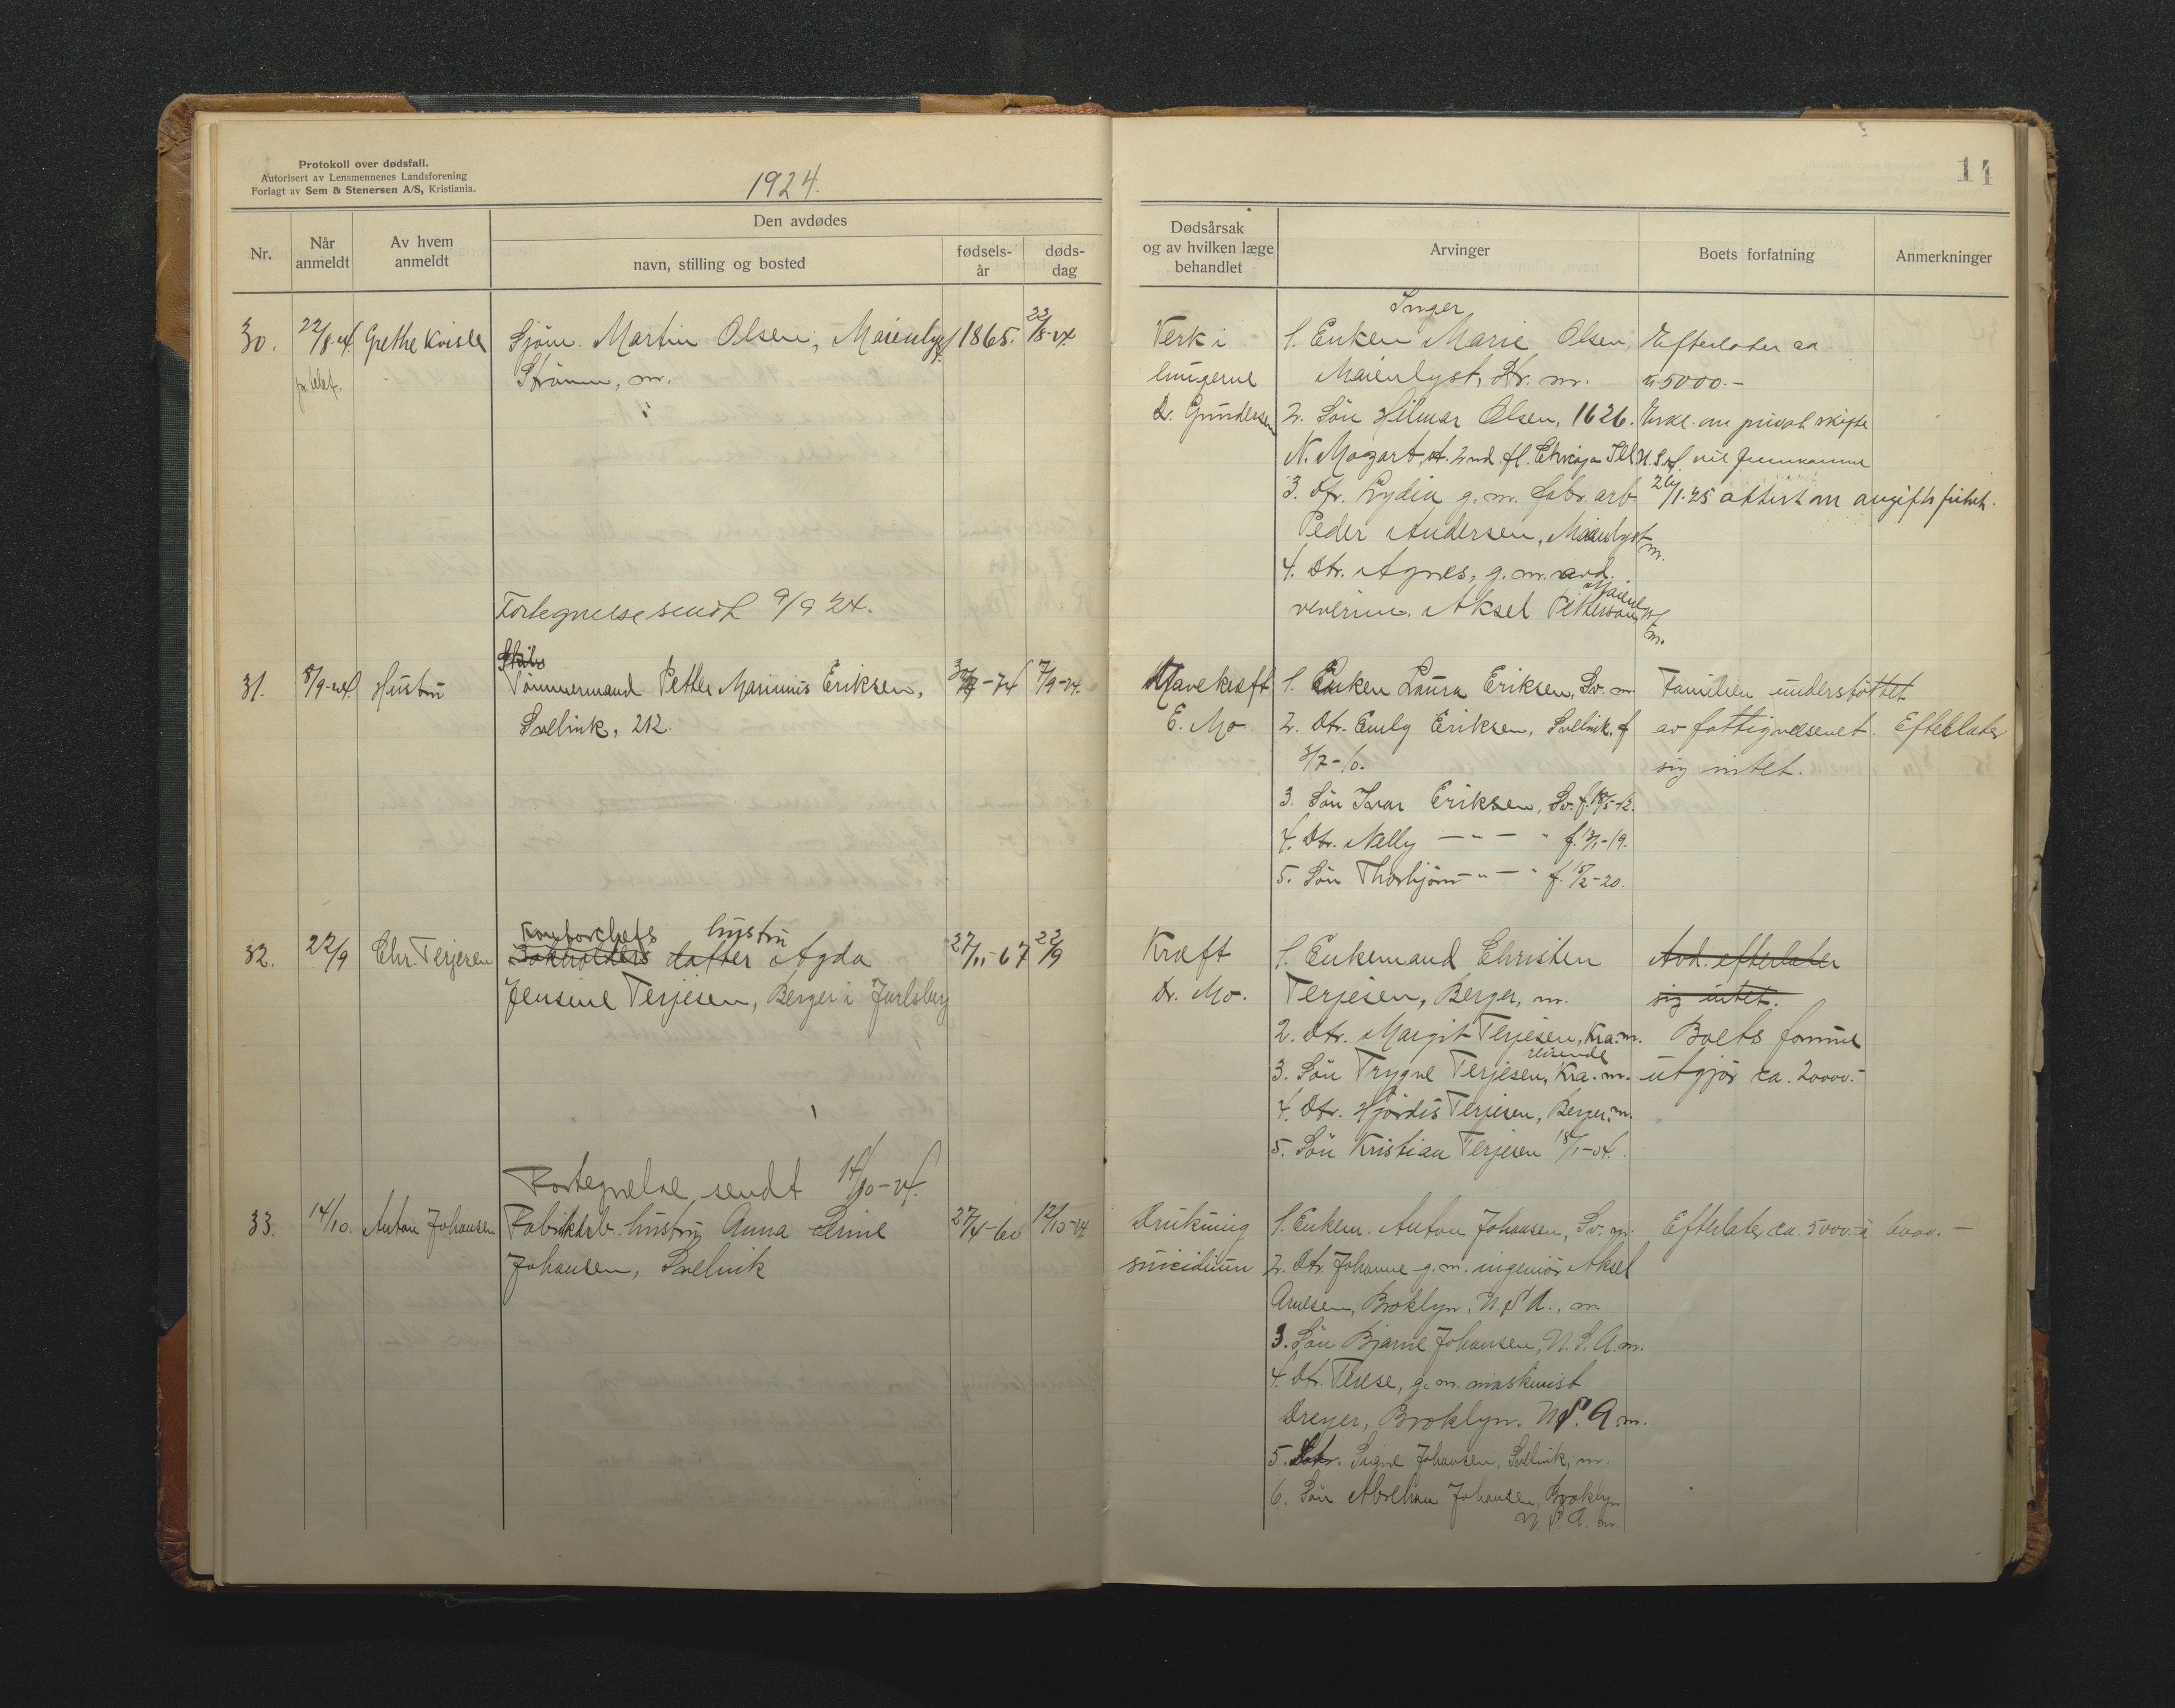 Protokoll over dødsfall.
Autorisert av Lensmennenes Landsforening
Forlagt av Sem & Stenersen A/S, Kristiania.
1924.
Nr.
Når anmeldt
Av hvem anmeldt
Den avdødes
navn, stilling og bosted
fødselsår
dødsdag
30. 22/8-24. Grethe Kvisle Sjøm. Martin Olsen, Maienlyst 1865.
pr. telef. Strømm, m.
Fortegnelse sendt 9/9 24.
Skibs
31. 8/9-24. Hustru Tømmermand Petter Marinius Eriksen, -74 7/9-24.
Svelvik, 212.
Kontorchefs hustru
32. 22/9 Chr. Terjesen Bokholders datter Agda 27/11-67 22/9
Jensine Terjesen, Berger i Jarlsberg
Fortegnelse sendt 14/10-24.
33. 14/10. Anton Johansen Fabrikarb. hustru Anna Serine 27/4-60 12/10-24
Johansen, Svelvik
11
Dødsårsak
og av hvilken læge
behandlet
Arvinger
Boets forfatning
Anmerkninger
Inger
Verk i 1. Enken Marie Olsen, Efterlater ca.
lungerne Maienlyst, Str. m. kr 5000.-
Dr. Gundersen 2. Søn Hilmar Olsen, 1626. Erkl. om privat skifte
N. Mozart st. 2nd. fl. Chicago Ill. U.S.A. vil fremkomme
3. Dtr. Lydia g.m. fabr. arb. 26/1-25 attest om avgiftsfrihet.
Peder Andersen, Maienlyst m.
4. Dtr. Agnes, g.m. arb.
Aksel Pettersen, Maienlyst m.
Mavekræft 1. Enken Laura Eriksen, Sv. m. Familien understøttet
E. Mo 2. Dtr. Emly Eriksen, Svelvik, f. av fattigvæsenet. Efterlater
3/7-10. sig intet.
3. Søn Ivar Eriksen, Sv. f. 18/5-12.
4. Dtr. Nelly — " — " f. -19.
5. Søn Thorbjørn — " — " f. 15/2-20.
Kræft 1. Enkemand Christen Avd. efterlater
Dr. Mo. Terjesen, Berger, m. sig intet.
2. Dtr. Margit Terjesen, Kra. m. Boets formue
reisende
3. Søn Trygve Terjesen, Kra. m. utgjør ca. 20000.-
4. Dtr. Hjørdis Terjesen, Berger, m.
5. Søn Kristian Terjesen 18/1-04.
Drukning 1. Enkem. Anton Johansen, Sv. m. Efterlater ca. 5000.- à 6000.-
suicidium 2. Dtr. Johanne g.m. ingeniør Aksel
Arnesen, Broklyn, U.S.A., m.
3. Søn Bjarne Johansen, U.S.A. m.
4. Dtr. Terese, g.m. maskinist
Dreyer, Broklyn. U.S.A. m.
5. Dtr. Signe Johansen, Svelvik, m.
6. Søn Abraham Johansen, Broklyn
U.S.A. m.